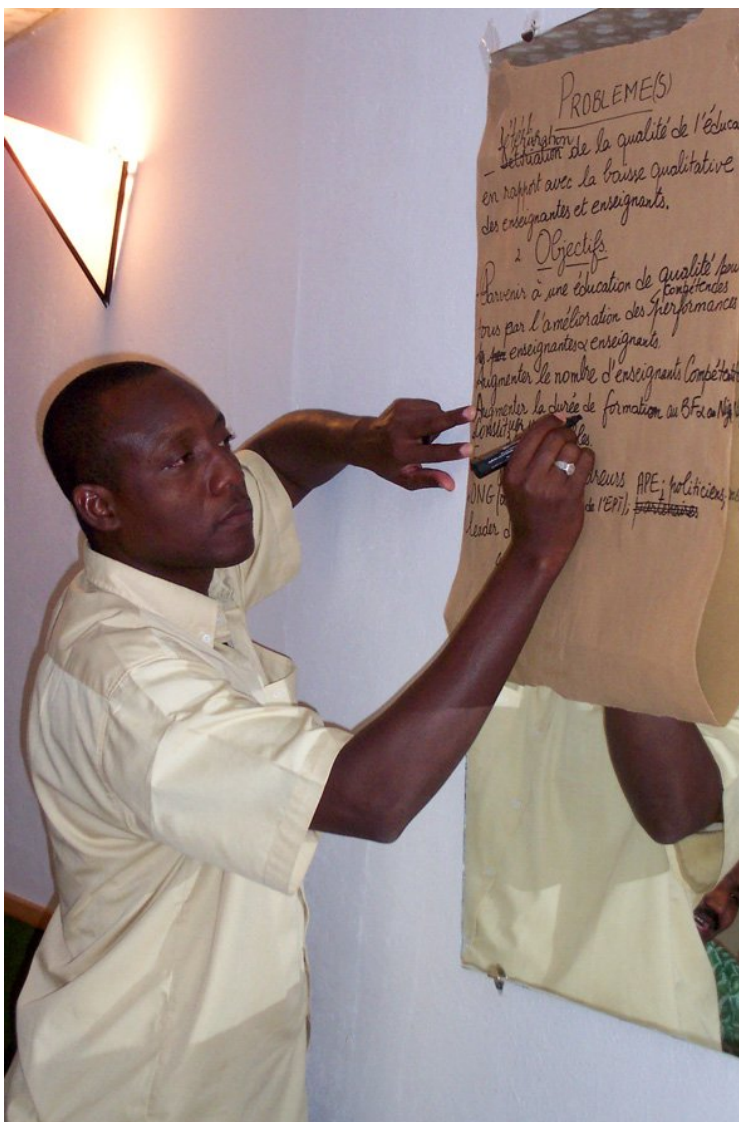 PROBLEME(S)
détérioration
- de la qualité de l'éduca
en rapport avec la baisse qualitative
des enseignantes et enseignants.
2 Objectifs
- Parvenir à une éducation de qualité pour
compétences
tous par l'amélioration des performances
enseignantes & enseignants.
Augmenter le nombre d'enseignants Compétents
Augmenter la durée de formation au BF & au
ONG APE; politiciens,
leader de l'EPT); partenaires